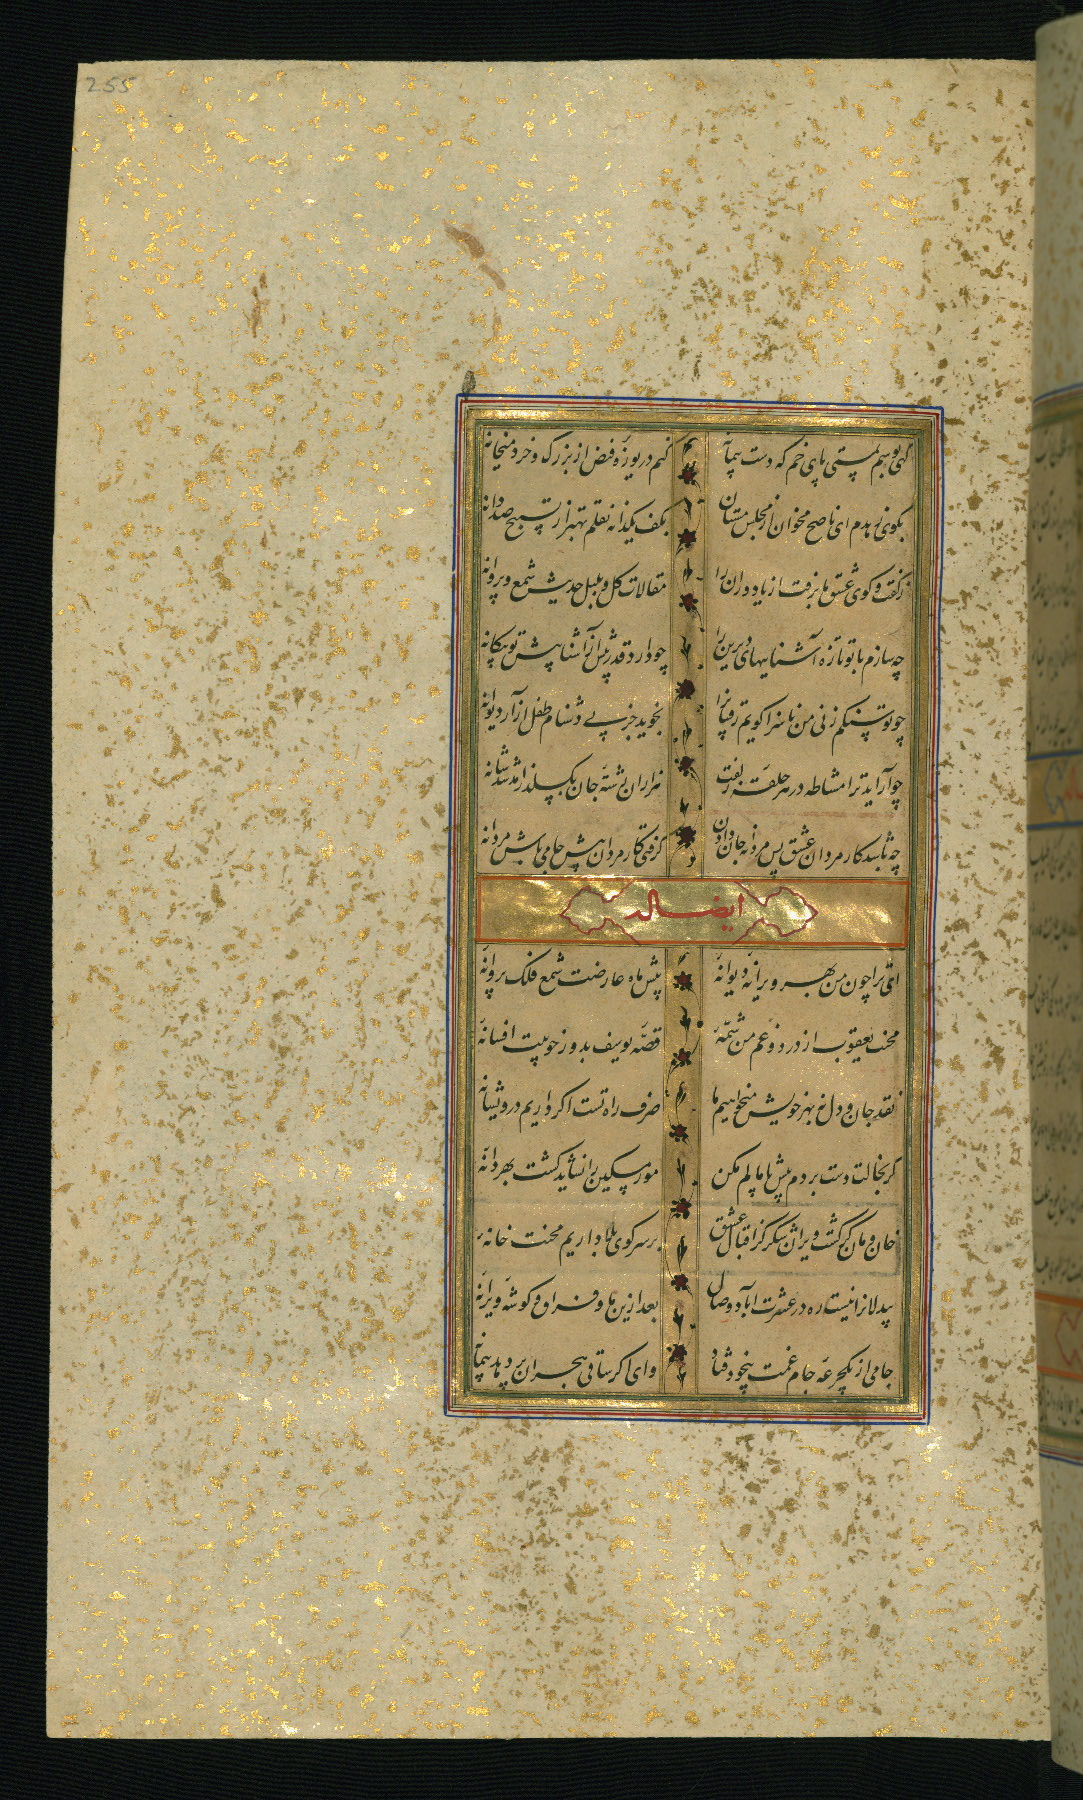 255
گهی بوسم بمستی پای خم گه دست پیمانه کنم دریوزه فیض از بزرگ و خرد میخانه
بکوی زاهدم ای ناصح مخوان از مجلس مستان بکف یکدانه نقلم بهتر از تسبیح صددانه
ز گفت و کوی عشق ما برفت از یاد دوران را مقالات گل و بلبل حدیث شمع و پروانه
چه سازم با تو تازه آشناییهای دیرین را چو دارد قدر بیش از آشنا پیش تو بیکانه
چو تو سنکم زنی من ناسزا کویم رقیبانرا نجوید جز پی دشنام طفل آزار دیوانه
چو آراید ترا مشاطه در هر حلقه زلفت هزاران رشته جان بکسلد از هر شانه
چه باشد کار مردان عشق پس مردانه جان دادن گرفتی کار مردان پیش جامی باش مردانه
ایضاله
ای ترا چون من بهر ویرانه دیوانه پیش ماه عارضت شمع فلک پروانه
محنت یعقوب از درد و غم من شمه قصه یوسف بدور خوبیت افسانه
نقد جان و دل نه بهر خویش میخواهیم ما صرف راه تست اکر داریم درویشانه
کر بخالت دست بردم پیش پامالم مکن مور مسکین را نشاید کشت بهر دانه
خان و مان کر کشت ویران شکر کز اقبال عشق بر سر کوی بلا داریم محنت خانه
بیدلانرا نیست ره در عشرت آباد وصال بعد ازین ما و فراق و کوشه ویرانه
جامی از یکجرعه جام غمت بیخود فتاد وای اکر ساقی هجران پر دهد پیمانه